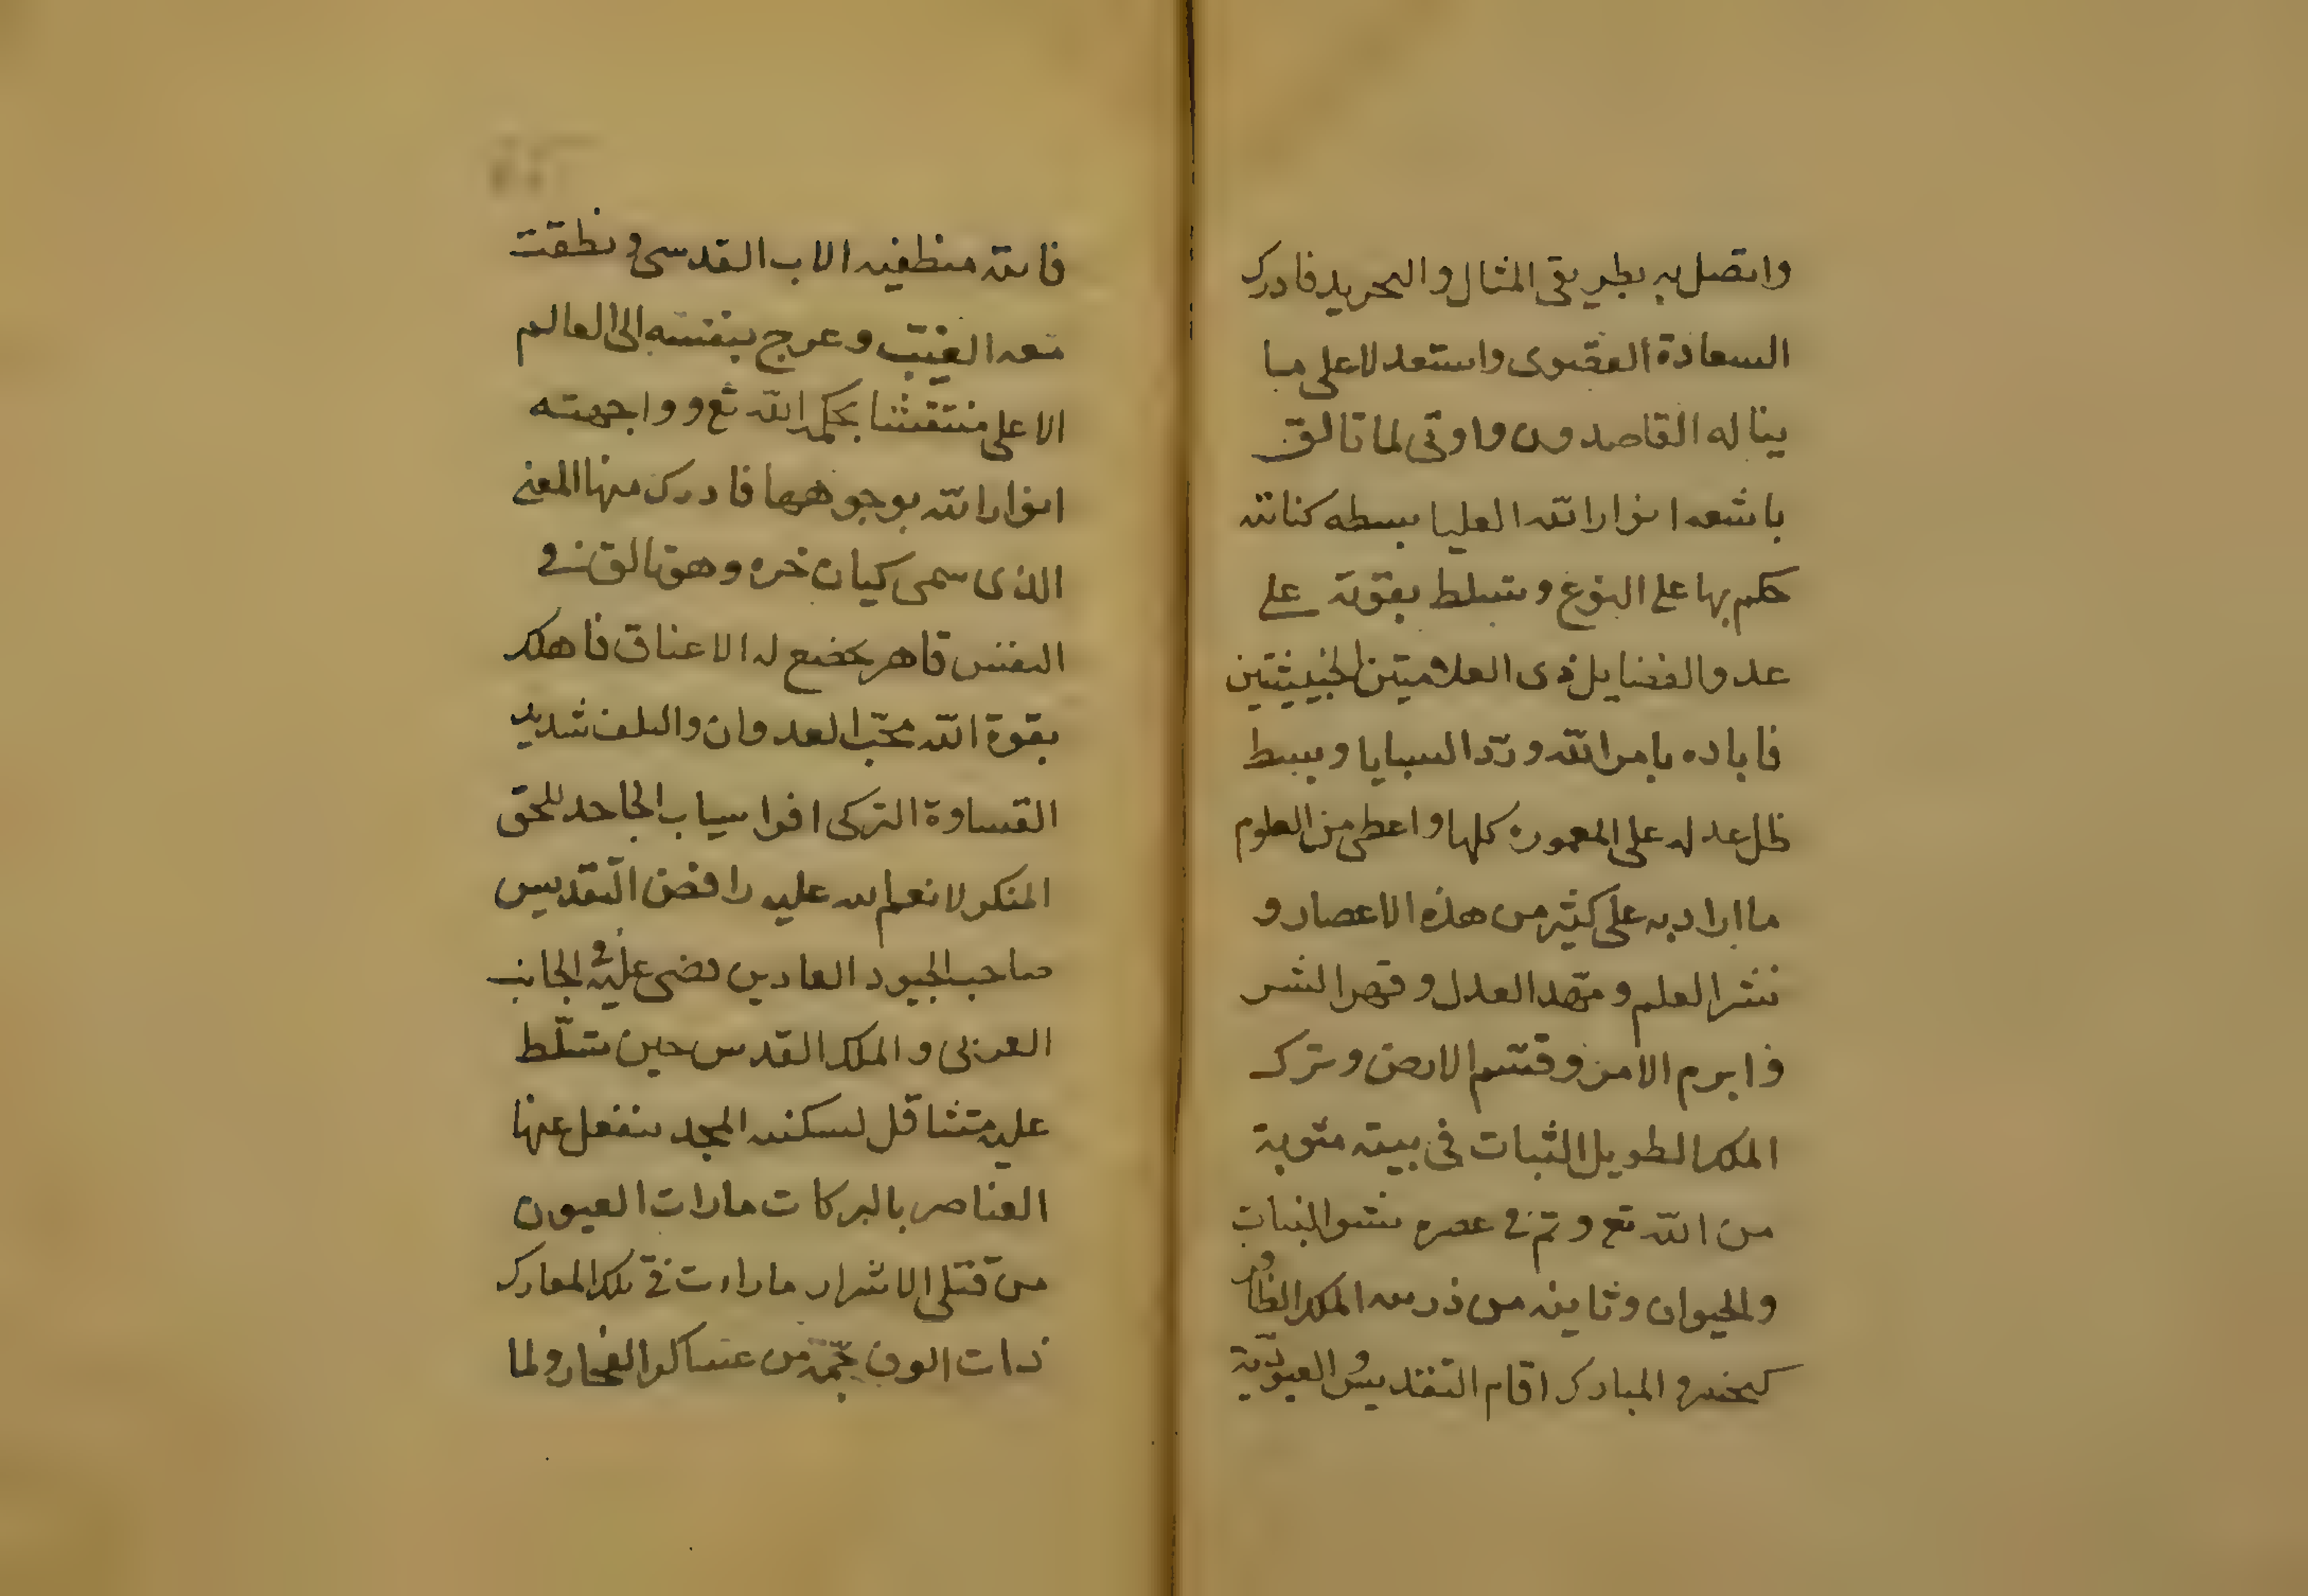 واتصل به بطريقى المثال والتجريد فادرك
السعادة القصوى واستعد لاعلى ما
يناله القاصدون واوتى لما تالق
باشعه انوار الله العليا بسطه كنانته
حكم بها على النوع وتسلط بقوته على
عدو الفضايل ذى العلامتين الخبيثتين
فاباده بامر الله وردّ السبايا وبسط
ظل عدله على المعموره كلها واعطى من العلوم
ما اراد به على كثير من هذه الاعصار و
نشر العلم ومهّد العدل وقهر الشر
و ابرم الامر وقسم الارض وترك
الملك الطويل الثبات فى بيته مثوبة
من الله تع وتم فى عصره نشو النبات
والحيوان وثانيه من ذريته الملك الظافر
كيخسرو المبارك اقام التقديس والعبوديّة
فاتته منطقيه الاب القدسى ونطقت
معه الغيب وعرج بنفسه الى العالم
الاعلى منتقشا بحكمه الله تع وواجهته
انوار الله بوجوهها فادرك منها المعنى
الذى سمى كيان خره وهو تالق فى
النفس قاهر يخضع له الاعناق فاهلك
بقوة الله محبّ العدوان والتلف شديد
القساوة التركى افراسياب الجاحد للحق
المنكر لانعم الله عليه رافض التقديس
صاحب الجيود العادين قضى عليه فى الجانب
الغربى و الملك القدس حين تسلّط
عليه متثاقل لسكنيه المجد ينفعل عنها
العناصر بالبركات ما رات العيون
من قتلى الاشرار ما رات فى تلك المعارك
ذات الوف جمّة من عساكر الفجار ولما